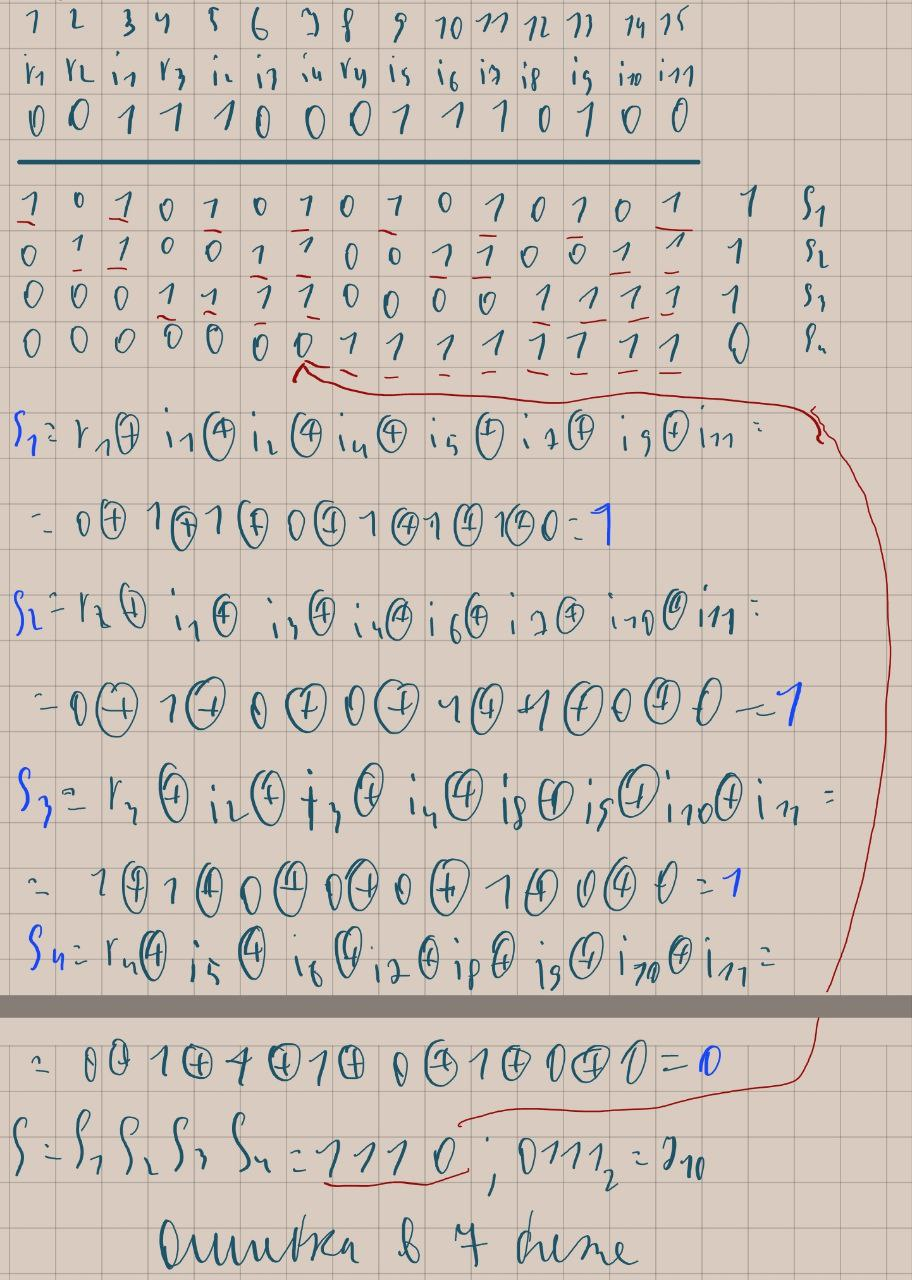 1 2 3 4 5 6 7 8 9 10 11 12 13 14 15
r₁ r₂ i₁ r₃ i₂ i₃ i₄ r₄ i₅ i₆ i₇ i₈ i₉ i₁₀ i₁₁
0 0 1 1 1 0 0 0 1 1 1 0 1 0 0
1 0 1 0 1 0 1 0 1 0 1 0 1 0 1 1 S₁
0 1 1 0 0 1 1 0 0 1 1 0 0 1 1 1 S₂
0 0 0 1 1 1 1 0 0 0 0 1 1 1 1 1 S₃
0 0 0 0 0 0 0 1 1 1 1 1 1 1 1 0 S₄
S₁ = r₁ ⊕ i₁ ⊕ i₂ ⊕ i₄ ⊕ i₅ ⊕ i₇ ⊕ i₉ ⊕ i₁₁ =
= 0 ⊕ 1 ⊕ 1 ⊕ 0 ⊕ 1 ⊕ 1 ⊕ 1 ⊕ 0 = 1
S₂ = r₂ ⊕ i₁ ⊕ i₃ ⊕ i₄ ⊕ i₆ ⊕ i₇ ⊕ i₁₀ ⊕ i₁₁ =
= 0 ⊕ 1 ⊕ 0 ⊕ 0 ⊕ 1 ⊕ 1 ⊕ 0 ⊕ 0 = 1
S₃ = r₃ ⊕ i₂ ⊕ i₃ ⊕ i₄ ⊕ i₈ ⊕ i₉ ⊕ i₁₀ ⊕ i₁₁ =
= 1 ⊕ 1 ⊕ 0 ⊕ 0 ⊕ 0 ⊕ 1 ⊕ 0 ⊕ 0 = 1
S₄ = r₄ ⊕ i₅ ⊕ i₆ ⊕ i₇ ⊕ i₈ ⊕ i₉ ⊕ i₁₀ ⊕ i₁₁ =
= 0 ⊕ 1 ⊕ 1 ⊕ 1 ⊕ 0 ⊕ 1 ⊕ 0 ⊕ 0 = 0
S = S₁ S₂ S₃ S₄ = 1110 ; 0111₂ = 7₁₀
Ошибка в 7 бите